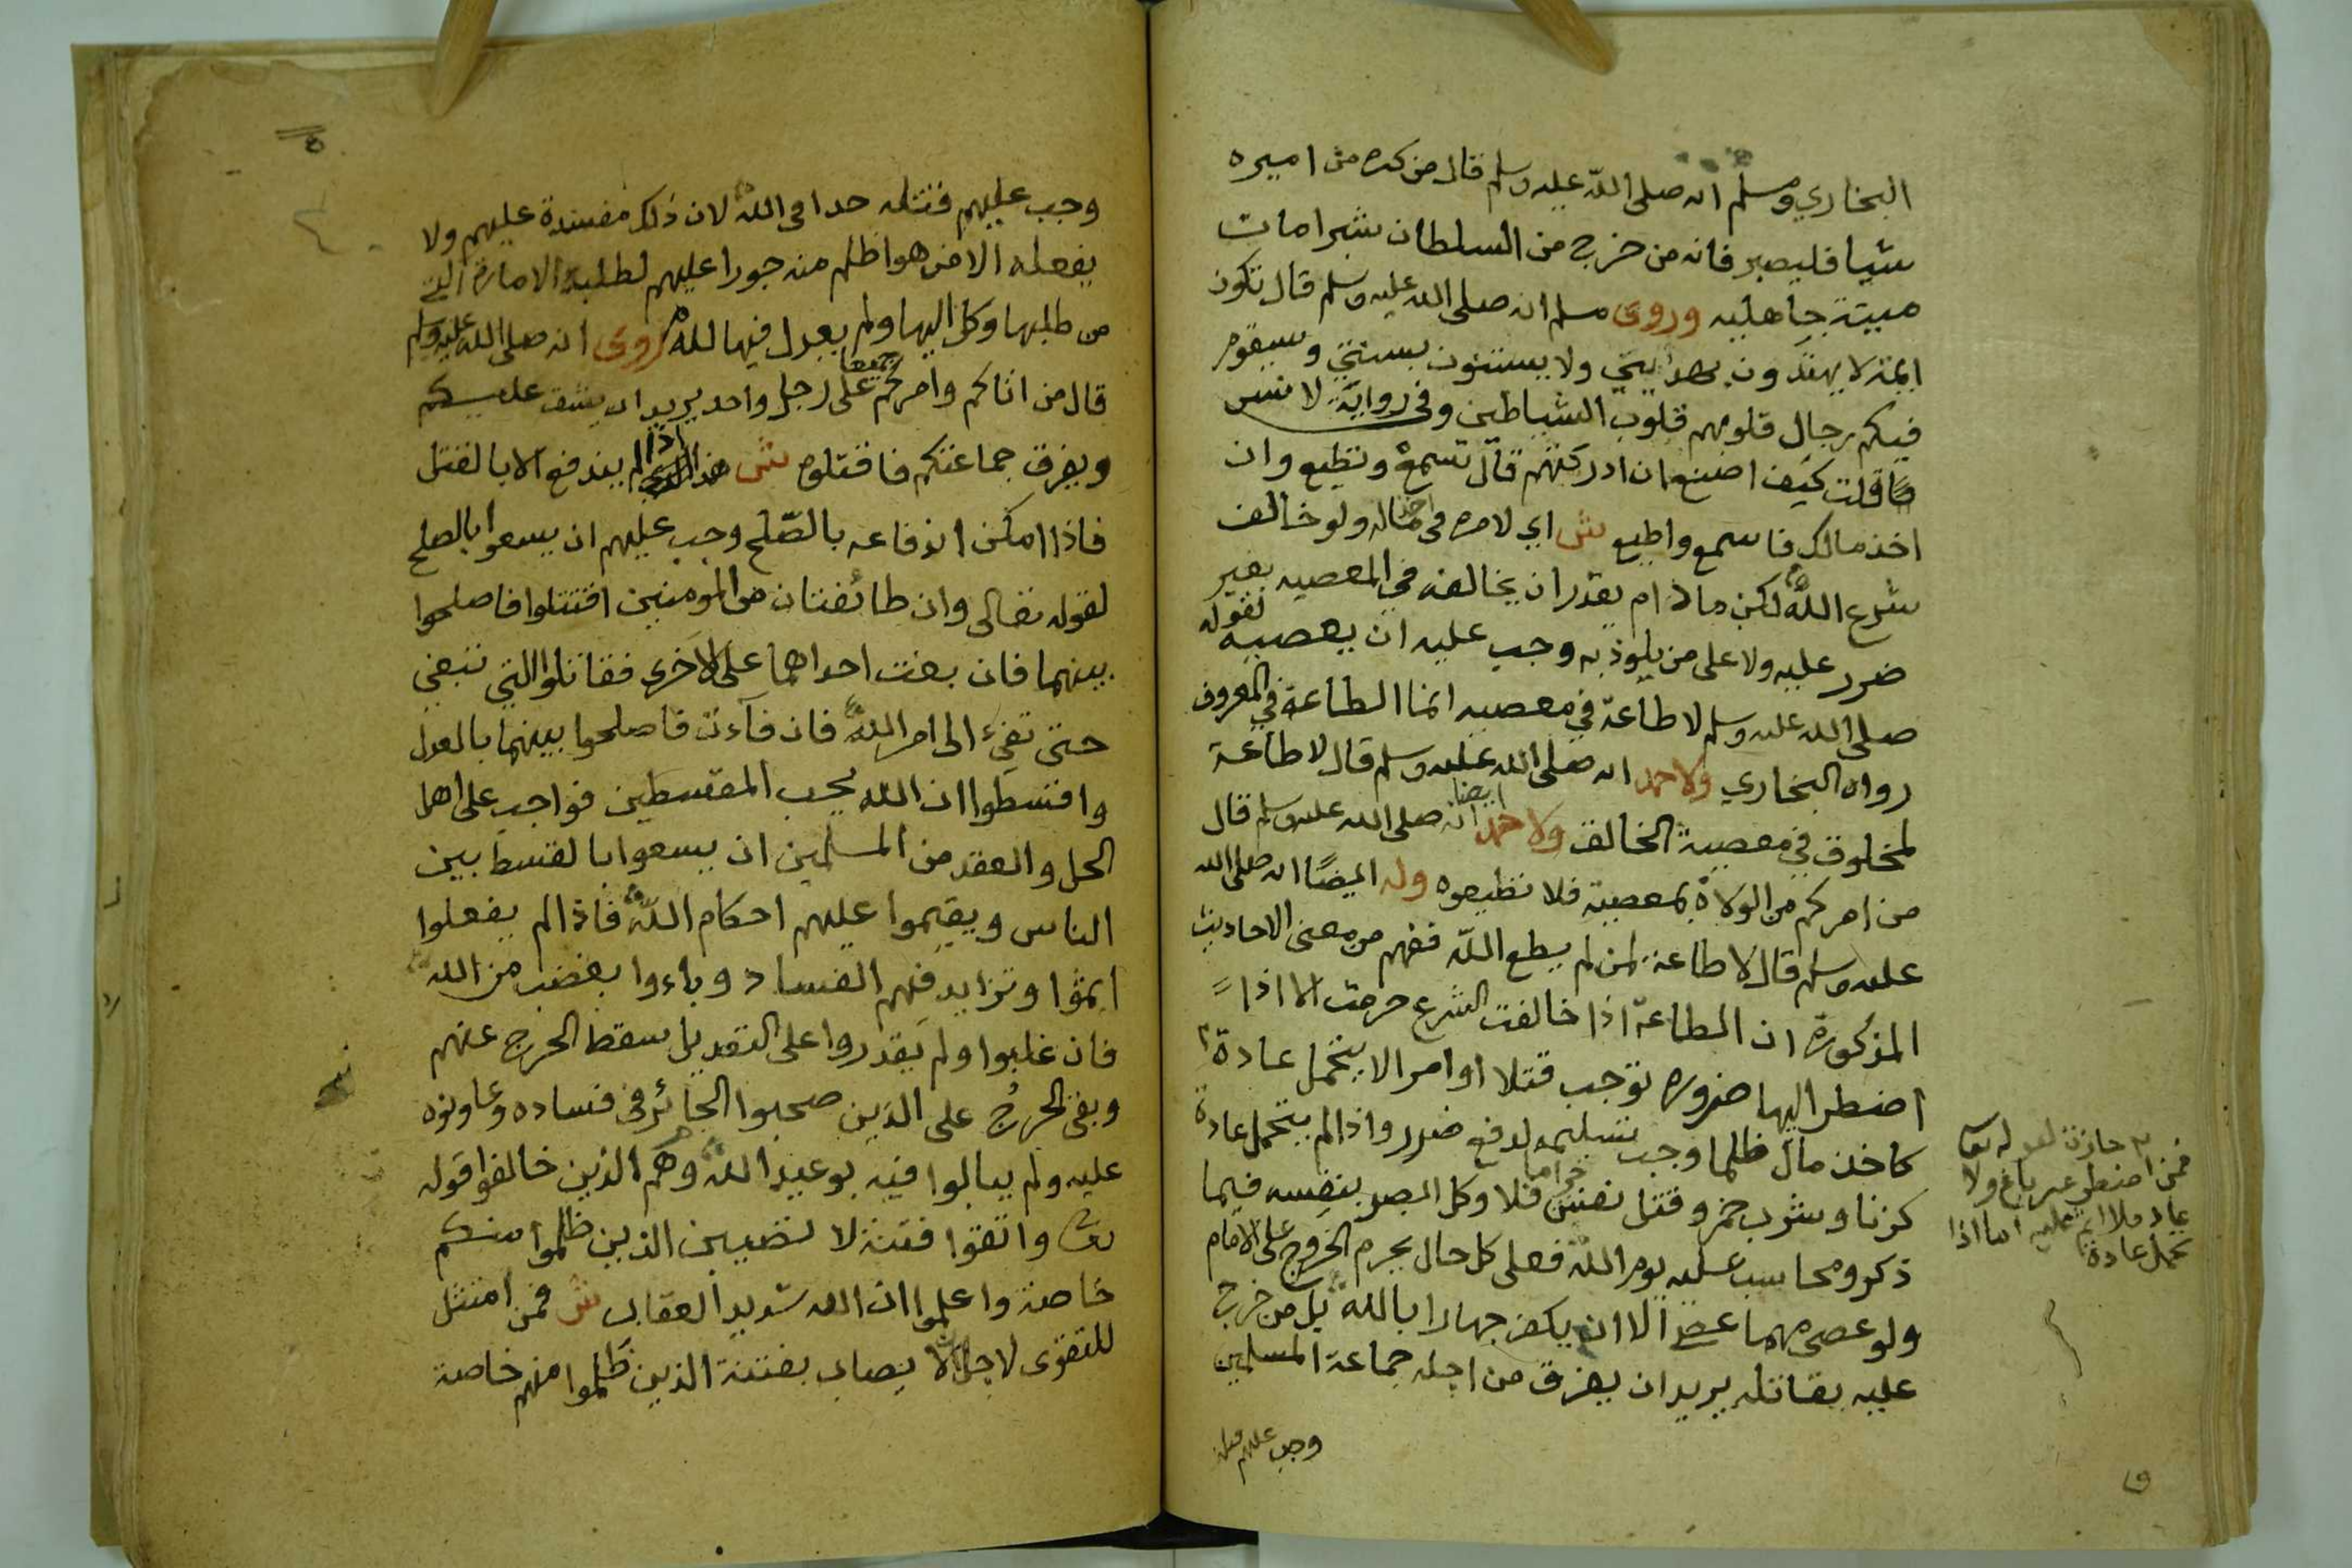 البخاري ومسلم انه صلى الله عليه وسلم قال من كره من اميره
شيا فليصبر فانه من خرج من السلطان شبرا مات
ميتة جاهليه وروى مسلم انه صلى الله عليه وسلم قال تكون
ايمة لا يهتدون بهديي ولا يستنون بسنتي وسيقوم
فيكم رجال قلوبهم قلوب الشياطين وفي رواية لا نس
قلت كيف اصنع ان ادركتهم قال تسمع وتطيع وان
اخذ مالك فاسمع واطيع ش اي لامره في اخذ ماله ولو خالف
شرع الله لكن مادام يقدر ان يخالفه في المعصيه بغير
ضرر عليه ولا على من يلوذ به وجب عليه ان يعصيه لقوله
صلى الله عليه وسلم لا طاعة في معصيه انما الطاعة في المعروف
رواه البخاري ولاحمد انه صلى الله عليه وسلم قال لا طاعة
لمخلوق في معصية الخالق ولاحمد ايضا انه صلى الله عليه وسلم قال
من امركم من الولاة بمعصية فلا تطيعوه وله ايضًا انه صلى الله
عليه وسلم قال لا طاعة لمن لم يطع الله ففهم من معنى الاحاديث
المذكورة ان الطاعة اذا خالفت الشرع حرمت الا اذا
اضطر اليها ضروره توجب قتلا او امرا لا يتحمل عادة
كاخذ مال ظلما وجب تسليمه لدفع ضرر واذا لم يتحمل عادة
كزنا وشرب خمر وقتل نفس حراما فلا وكل البصر بنفسه فيما
ذكر ومحاسب عليه يوم الله فعلى كل حال يحرم الخروج على الامام
ولو عصى مهما عصى الا ان يكفر جهارا بالله بل من خرج
عليه بقاتله يريد ان يفرق من اجله جماعة المسلمين
وجب عليهم قتله
جازت لقوله تعا
فمن اضطر غير باغ ولا
عاد فلا اثم عليه اما اذا
تحمل عادة
وجب عليهم فتتله حدا في الله لان ذلك مفسدة عليهم ولا
يفعله الا من هو اظلم منه جورا عليهم لطلبه الامارة التي
من طلبها وكل اليها ولم يعدل فيها لله وروى انه صلى الله عليه وسلم
قال من اتاكم وامركم جميعا على رجل واحد يريد ان يشق عليكم
ويفرق جماعتكم فاقتلوه ش هذا اذا لم يندفع الا بالقتل
فاذا امكن اندفاعه بالصّلح وجب عليهم ان يسعوا بالصلح
لقوله تعالى وان طائفتان من المومنين اقتتلوا فاصلحوا
بينهما فان بغت احداهما على الاخرى فقاتلوا التي تبغي
حتى تفيء الى امر الله فان فآءت فاصلحوا بينهما بالعدل
واقسطوا ان الله يحب المقسطين فواجب على اهل
الحل والعقد من المسلمين ان يسعوا بالقسط بين
الناس ويقيموا عليهم احكام الله فاذا لم يفعلوا
اثموا وتزايد فيهم الفساد وباءوا بغضب من الله
فان غلبوا ولم يقدروا على التعديل سقط الحرج عنهم
وبقى الحرجُ على الذين صحبوا الجائر في فساده وعاونوه
عليه ولم يبالوا فيه بوعيد الله وهم الذين خالفوا قوله
تعالى واتقوا فتنة لا تصيبن الذين ظلموا منكم
خاصة واعلموا ان الله شديد العقاب ش فمن امتثل
للتقوى لاجل الله لا يصاب بفتنة الذين ظلموا منهم خاصة